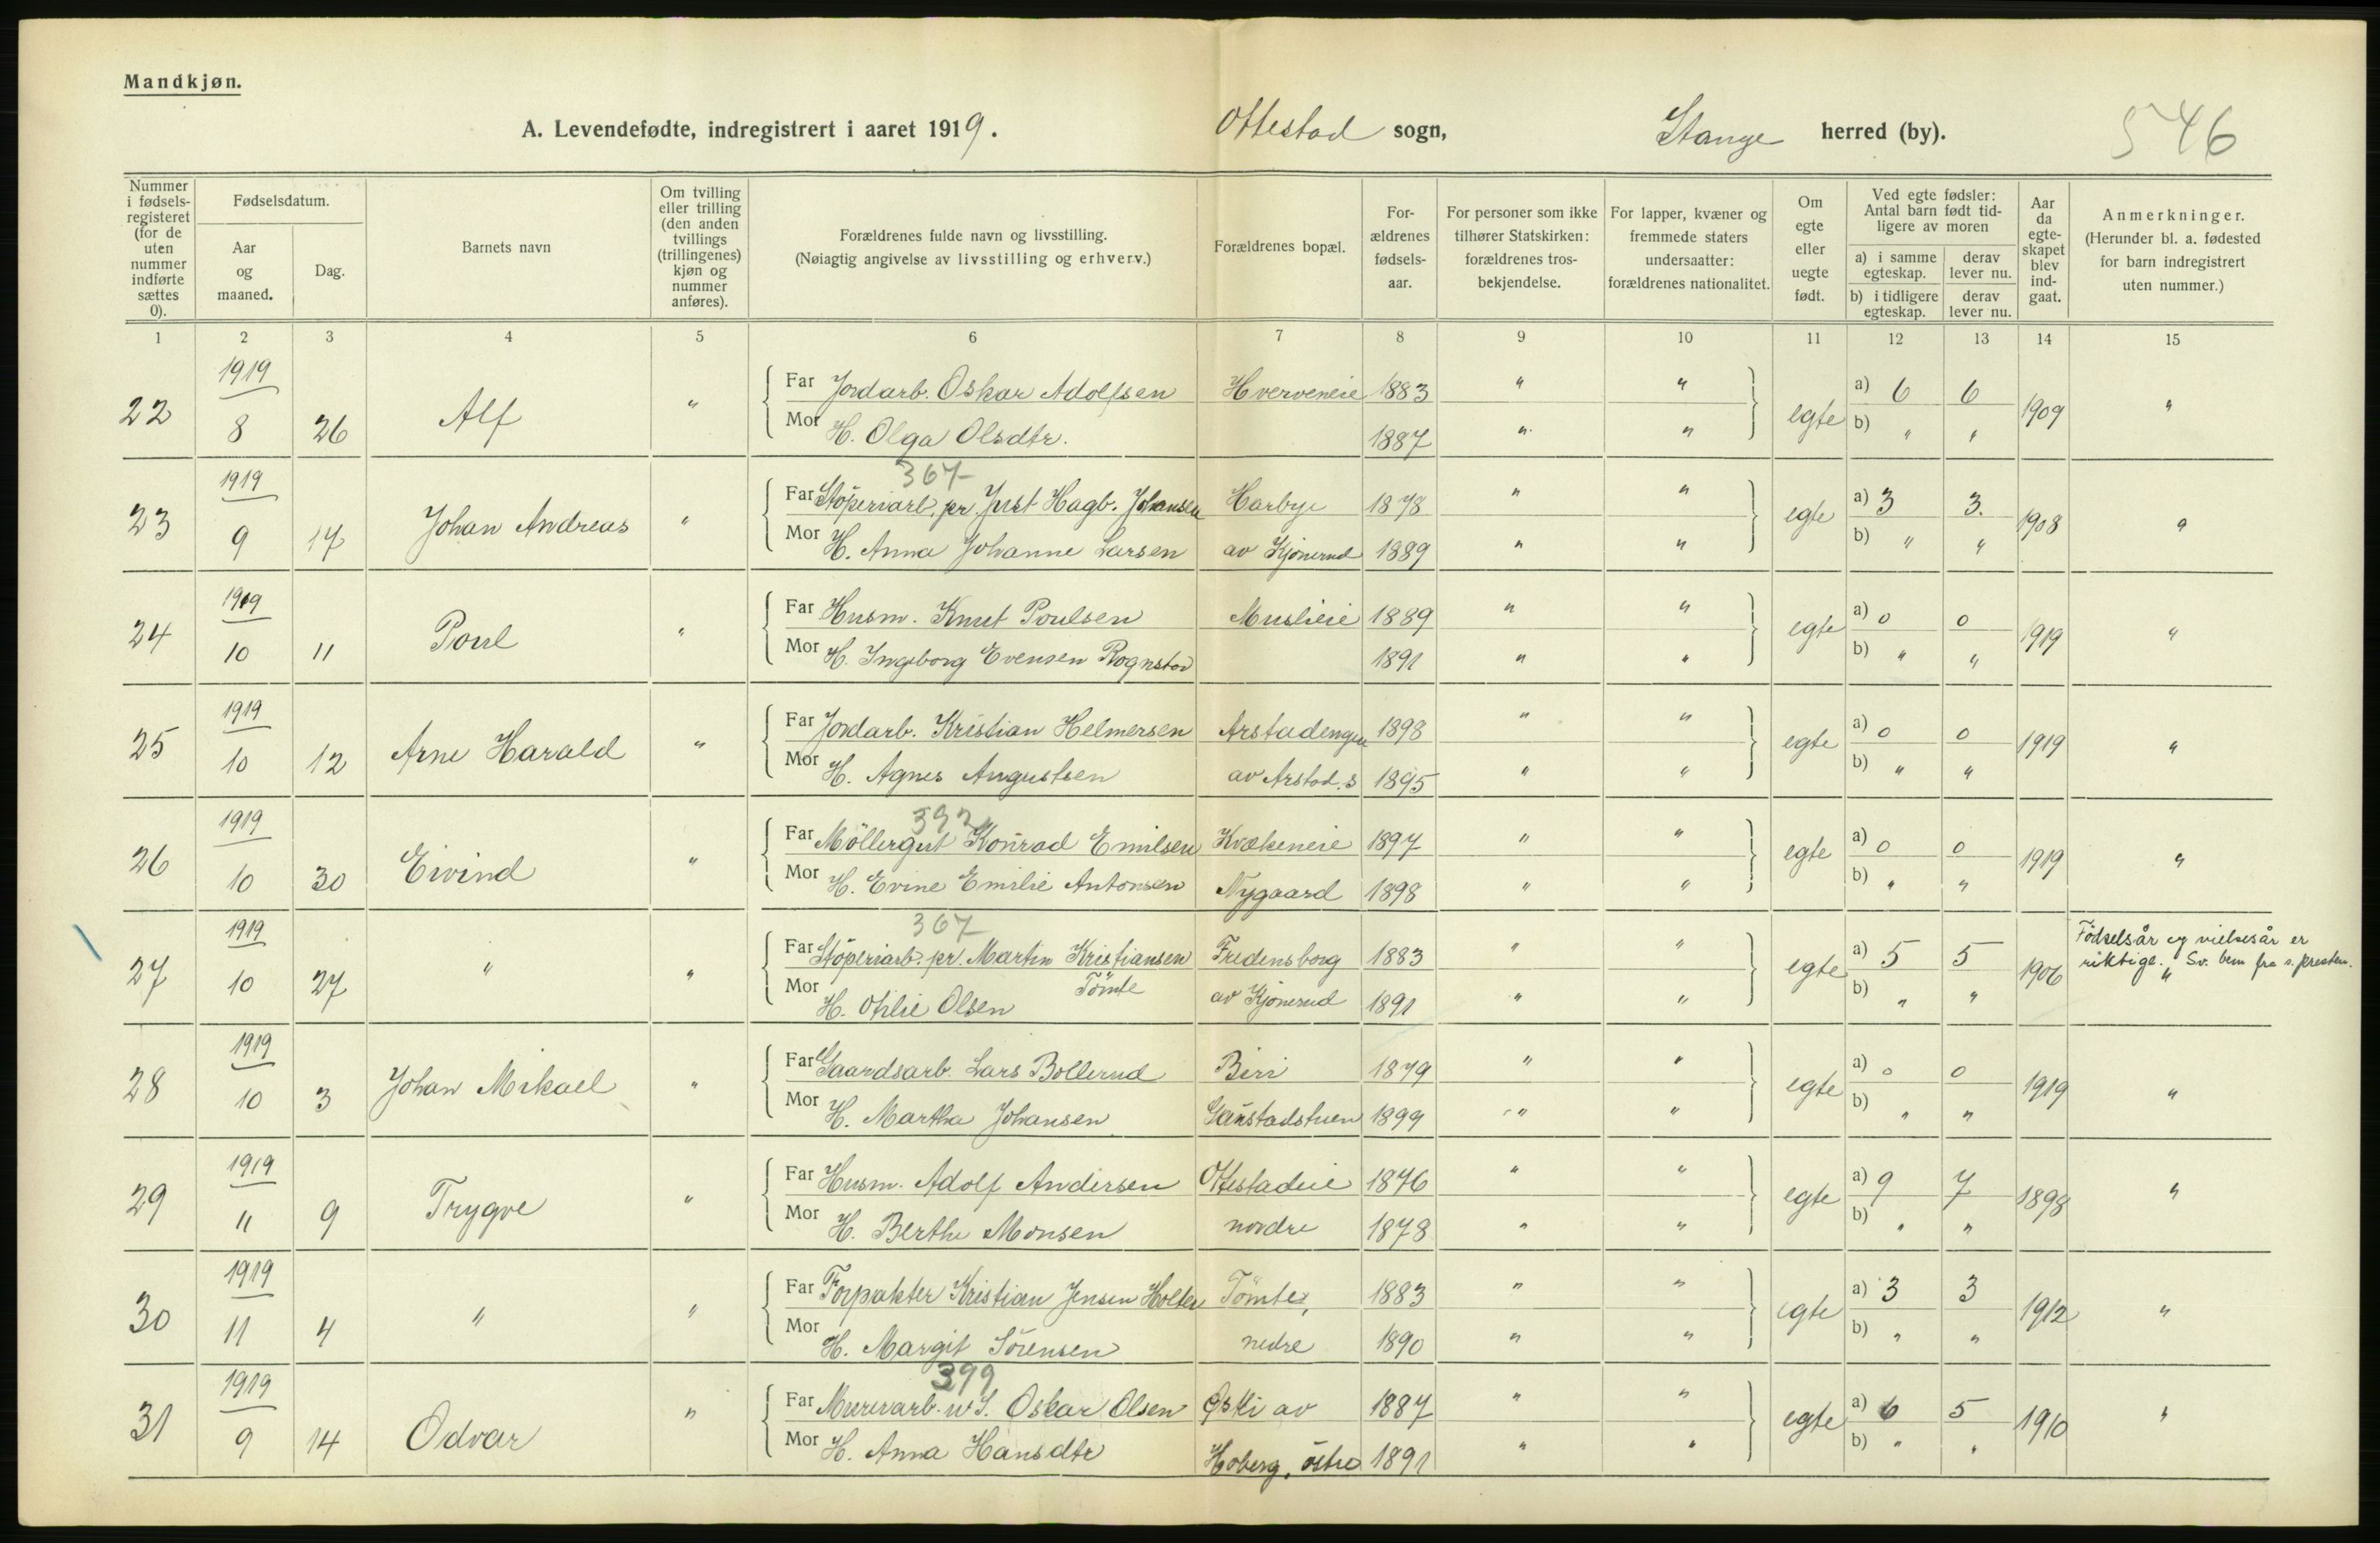 Mandkjøn.
A. Levendefødte, indregistrert i aaret 1919. Ottestad sogn, Stange herred (by). 546
Nummer i fødsels-registeret (for de uten nummer indførte sættes 0).
Fødselsdatum.
Aar og maaned.
Dag.
Barnets navn
Om tvilling eller trilling (den anden tvillings (trillingenes) kjøn og nummer anføres).
Forældrenes fulde navn og livsstilling.
(Nøiagtig angivelse av livsstilling og erhverv.)
Forældrenes bopæl.
For-ældrenes fødsels-aar.
For personer som ikke tilhører Statskirken: forældrenes tros-bekjendelse.
For lapper, kvæner og fremmede staters undersaatter: forældrenes nationalitet.
Om egte eller uegte født.
Ved egte fødsler: Antal barn født tid-ligere av moren
a) i samme egteskap. derav lever nu.
b) i tidligere egteskap. derav lever nu.
Aar da egte-skapet blev ind-gaat.
Anmerkninger.
(Herunder bl. a. fødested for barn indregistrert uten nummer.)
1 2 3 4 5 6 7 8 9 10 11 12 13 14 15
1919
22 8 26 Alf " Far Jordarb. Oskar Adolfsen Hverveneie 1883 " " egte a) 6 6 1909 "
Mor H. Olga Olsdtr. 1887 " " b) " "
367
1919
23 9 17 Johan Andreas " Far Støperiarb. pr. Just Hagb. Johansen Harbye 1878 " " egte a) 3 3. 1908 "
Mor H. Anna Johanne Larsen av Kjønerud 1889 " " b) " "
1919
24 10 11 Poul " Far Husm. Knut Poulsen Muslieie 1889 " " egte a) 0 0 1919 "
Mor H. Ingeborg Evensen Rognstad 1891 " " b) " "
1919
25 10 12 Arne Harald " Far Jordarb. Kristian Helmersen Arstadengen 1898 " " egte a) 0 0 1919 "
Mor H. Agnes Augustsen av Arstad. s 1895 " " b) " "
392
1919
26 10 30 Eivind " Far Möllergut Konrad Emilsen Kvækeneie 1897 " " egte a) 0 0 1919 "
Mor H. Evine Emilie Antonsen Nygaard 1898 " " b) " "
367
1919
27 10 27 " " Far Støperiarb. pr. Martin Kristiansen Fredensborg 1883 " " egte a) 5 5 1906 Fødselsår og vielsesår er
riktige. " Sv. bem fra s. presten.
Tömte
Mor H. Otilie Olsen av Kjønerud 1891 " " b) " "
1919
28 10 3 Johan Mikael " Far Gaardsarb. Lars Bollerud Biri 1879 " " egte a) 0 0 1919 "
Mor H. Martha Johansen Gaustadstuen 1899 " " b) " "
1919
29 11 9 Trygve " Far Husm. Adolf Andersen Ottestadeie 1876 " " egte a) 9 7 1898 "
Mor H. Berthe Monsen nordre 1878 " " b) " "
1919
30 11 4 " " Far Forpakter Kristian Jensen Holter Tömte, 1883 " " egte a) 3 3 1912 "
Mor H. Margit Sörensen nedre 1890 " " b) " "
399
1919
31 9 14 Odvar " Far Murerarb. u. S. Oskar Olsen Østli av 1887 " " egte a) 6 5 1910 "
Mor H. Anna Hansdtr Hoberg, östre 1891 " " b) " "